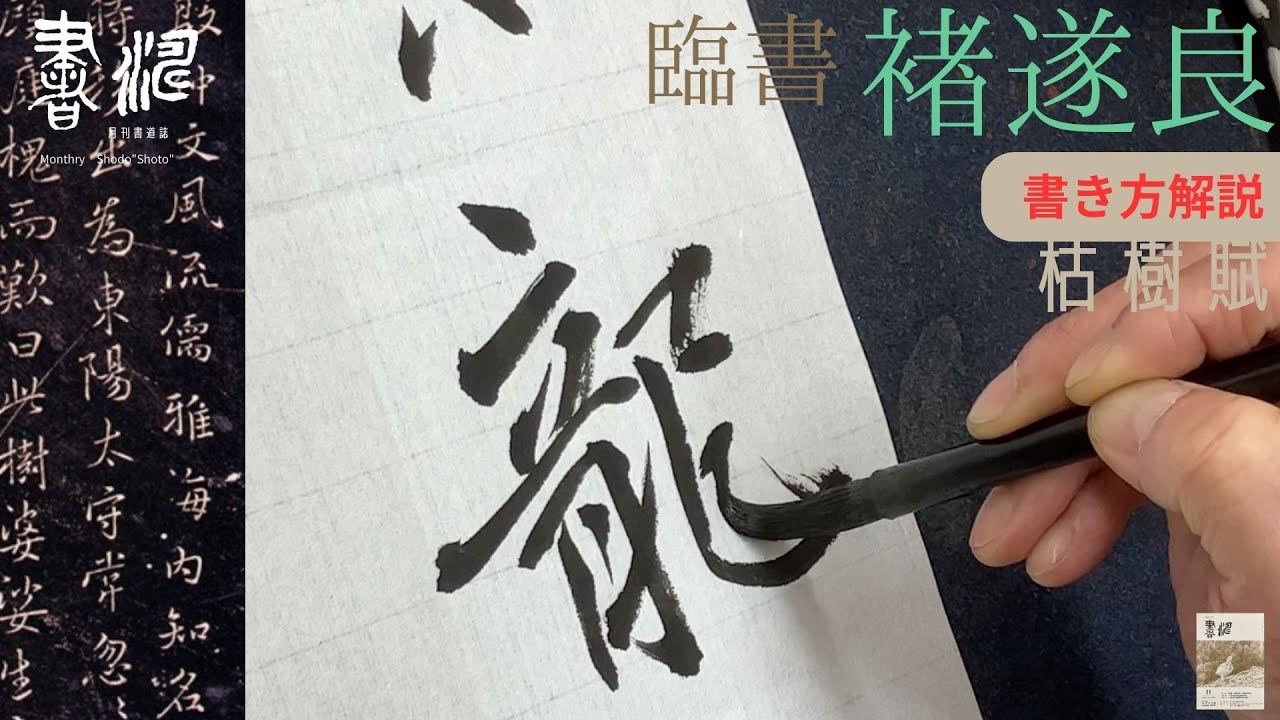 書
月刊書道誌
Monthry Shodo"Shoto"
臨書 褚遂良
書き方解説
枯樹賦
殷仲文風流儒雅海内知名
時 出為東陽太守常忽〻
顧庭槐而歎曰此樹婆娑生
龍
書
11